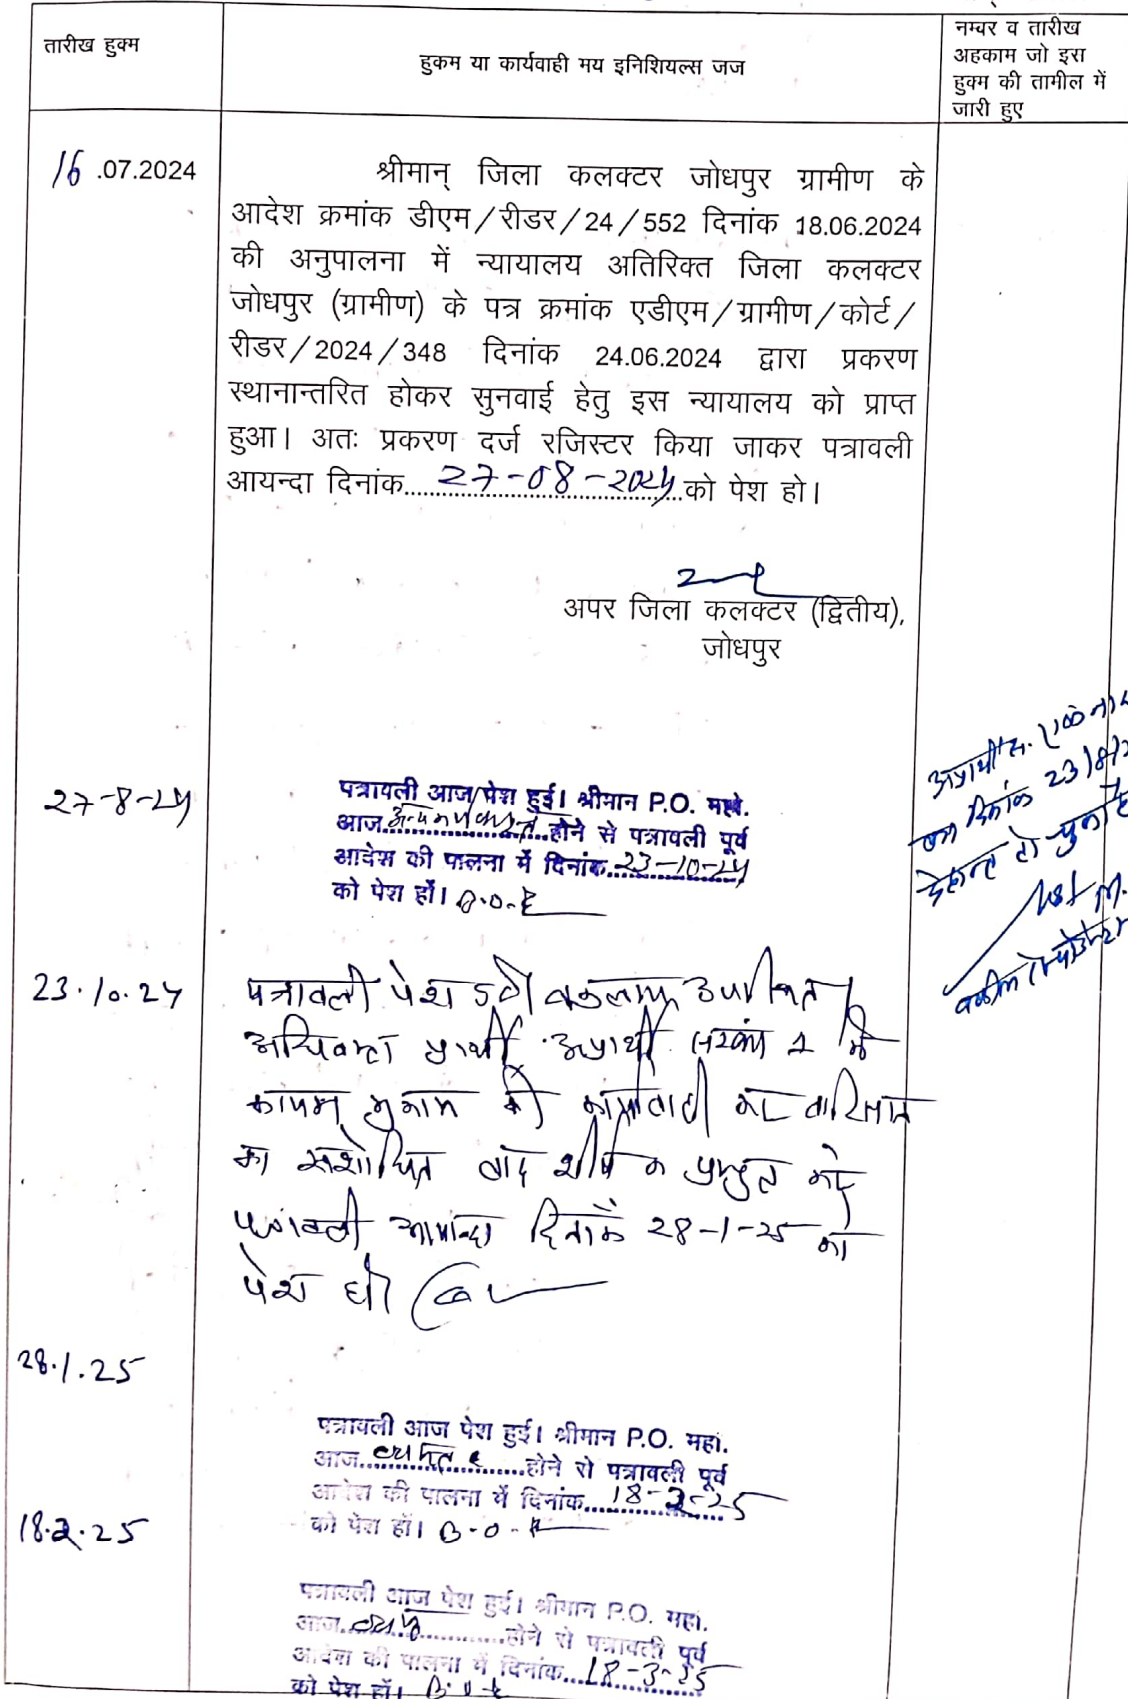 तारीख हुक्म
हुकम या कार्यवाही मय इनिशियल्स जज
नम्बर व तारीख
अहकाम जो इस
हुक्म की तामील में
जारी हुए
16 .07.2024
श्रीमान् जिला कलक्टर जोधपुर ग्रामीण के
आदेश क्रमांक डीएम/रीडर/24/552 दिनांक 18.06.2024
की अनुपालना में न्यायालय अतिरिक्त जिला कलक्टर
जोधपुर (ग्रामीण) के पत्र क्रमांक एडीएम/ग्रामीण/कोर्ट/
रीडर/2024/348 दिनांक 24.06.2024 द्वारा प्रकरण
स्थानान्तरित होकर सुनवाई हेतु इस न्यायालय को प्राप्त
हुआ। अतः प्रकरण दर्ज रजिस्टर किया जाकर पत्रावली
आयन्दा दिनांक....27-08-2024....को पेश हो।
अपर जिला कलक्टर (द्वितीय),
जोधपुर
अप्रार्थी सं.
का दिनांक 23/8/
देहान्त हो चुका है
वकील
27-8-24
पत्रावली आज पेश हुई। श्रीमान P.O. महो.
आज.......होने से पत्रावली पूर्व
आदेश की पालना में दिनांक..23-10-24
को पेश हों। B.O.R
23.10.24
पत्रावली पेश हुई वकलाय उपस्थित
अधिवक्ता प्रार्थी अप्रार्थी संख्या 1 के
कायम मुकाम की कार्यवाही कर वारिसान
का संशोधित वाद शीर्षक प्रस्तुत करे
पत्रावली आयन्दा दिनांक 28-1-25 को
पेश हो
28.1.25
पत्रावली आज पेश हुई। श्रीमान P.O. महो.
आज...व्यस्त....होने से पत्रावली पूर्व
आदेश की पालना में दिनांक...18-2-25
को पेश हों। B-O-R
18.2.25
पत्रावली आज पेश हुई। श्रीमान P.O. महो.
आज...व्यस्त....होने से पत्रावली पूर्व
आदेश की पालना में दिनांक...18-3-25
को पेश हों।